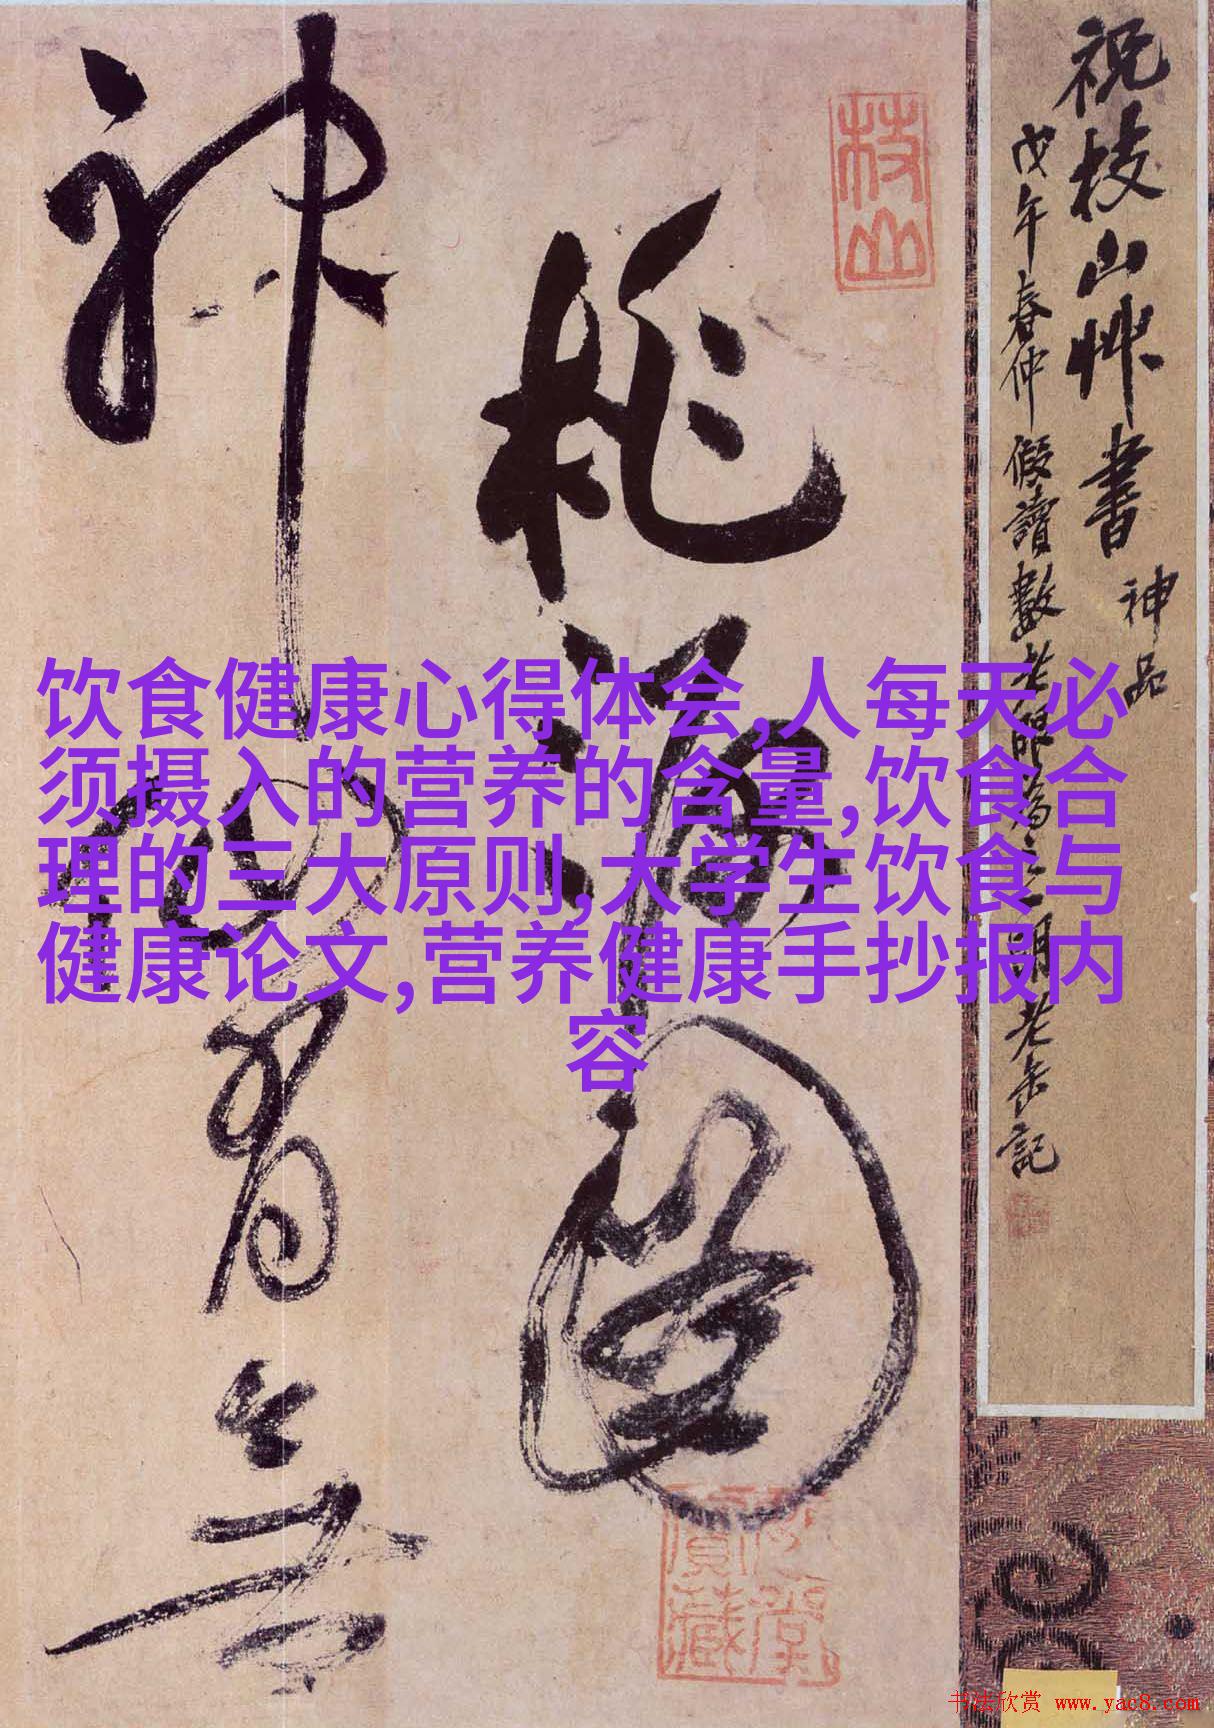 祝枝山艸書 神品
戊午春仲 假讀數

枝山
桃源圖
神仙有無
饮食健康心得体会,人每天必
须摄入的营养的含量,饮食合
理的三大原则,大学生饮食与
健康论文,营养健康手抄报内
容
书法欣赏 www.yac8.com